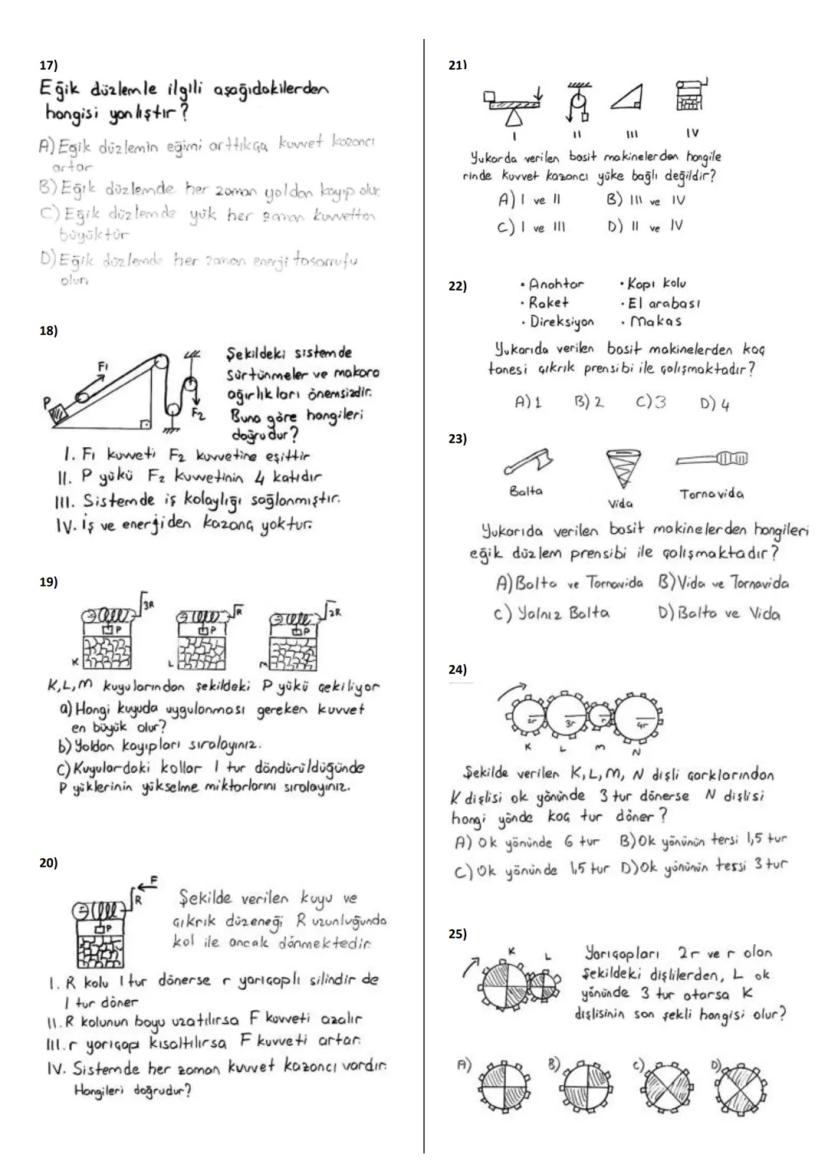 17)
Eğik düzlemle ilgili aşağıdakilerden
hangisi yanlıştır?
A) Eğik düzlemin eğimi arttıkça kuvvet kazancı
artar
B) Eğik düzlemde her zaman yoldan kayıp olur
C) Eğik düzlemde yük her zaman kuvvetten
büyüktür
D) Eğik düzlemde her zaman enerji tasarrufu
olur
18)
P
F1
F2
Şekildeki sistemde
sürtünmeler ve makara
ağırlıkları önemsizdir.
Buna göre hangileri
doğrudur?
I. F1 kuvveti F2 kuvvetine eşittir
II. P yükü F2 kuvvetinin 4 katıdır
III. Sistemde iş kolaylığı sağlanmıştır.
IV. İş ve enerjiden kazanç yoktur.
19)
3R R 2R
P P P
K L M
K,L,M kuyularından şekildeki P yükü çekiliyor
a) Hangi kuyuda uygulanması gereken kuvvet
en büyük olur?
b) Yoldan kayıpları sıralayınız.
c) Kuyulardaki kollar 1 tur döndürüldüğünde
P yüklerinin yükselme miktarlarını sıralayınız.
20)
F
R
P
Şekilde verilen kuyu ve
çıkrık düzeneği R uzunluğunda
kol ile ancak dönmektedir.
I. R kolu 1 tur dönerse r yarıçaplı silindir de
1 tur döner
II. R kolunun boyu uzatılırsa F kuvveti azalır
III. r yarıçapı kısaltılırsa F kuvveti artar.
IV. Sistemde her zaman kuvvet kazancı vardır.
Hangileri doğrudur?
21)
I II III IV
Yukarda verilen basit makinelerden hangile
rinde kuvvet kazancı yüke bağlı değildir?
A) I ve II B) III ve IV
C) I ve III D) II ve IV
22)
• Anahtar • Kapı kolu
• Raket • El arabası
• Direksiyon • Makas
Yukarıda verilen basit makinelerden kaç
tanesi çıkrık prensibi ile çalışmaktadır?
A) 1 B) 2 C) 3 D) 4
23)
Balta Vida Tornavida
Yukarıda verilen basit makinelerden hangileri
eğik düzlem prensibi ile çalışmaktadır?
A) Balta ve Tornavida B) Vida ve Tornavida
C) Yalnız Balta D) Balta ve Vida
24)
2r 3r r 4r
K L M N
Şekilde verilen K,L,M,N dişli çarklarından
K dişlisi ok yönünde 3 tur dönerse N dişlisi
hangi yönde kaç tur döner?
A) Ok yönünde 6 tur B) Ok yönünün tersi 1,5 tur
C) Ok yönünde 1,5 tur D) Ok yönünün tersi 3 tur
25)
K L
Yarıçapları 2r ve r olan
şekildeki dişlilerden, L ok
yönünde 3 tur atarsa K
dişlisinin son şekli hangisi olur?
A) B) C) D)